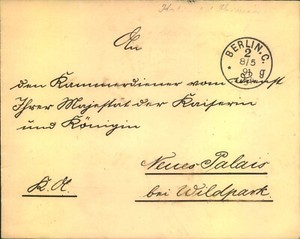 BERLIN, C.
2
8/5
An
den Kammerdiener vom Dienst
Ihrer Majestät der Kaiserin
und Königin
Neues Palais
K. H.
bei Wildpark.